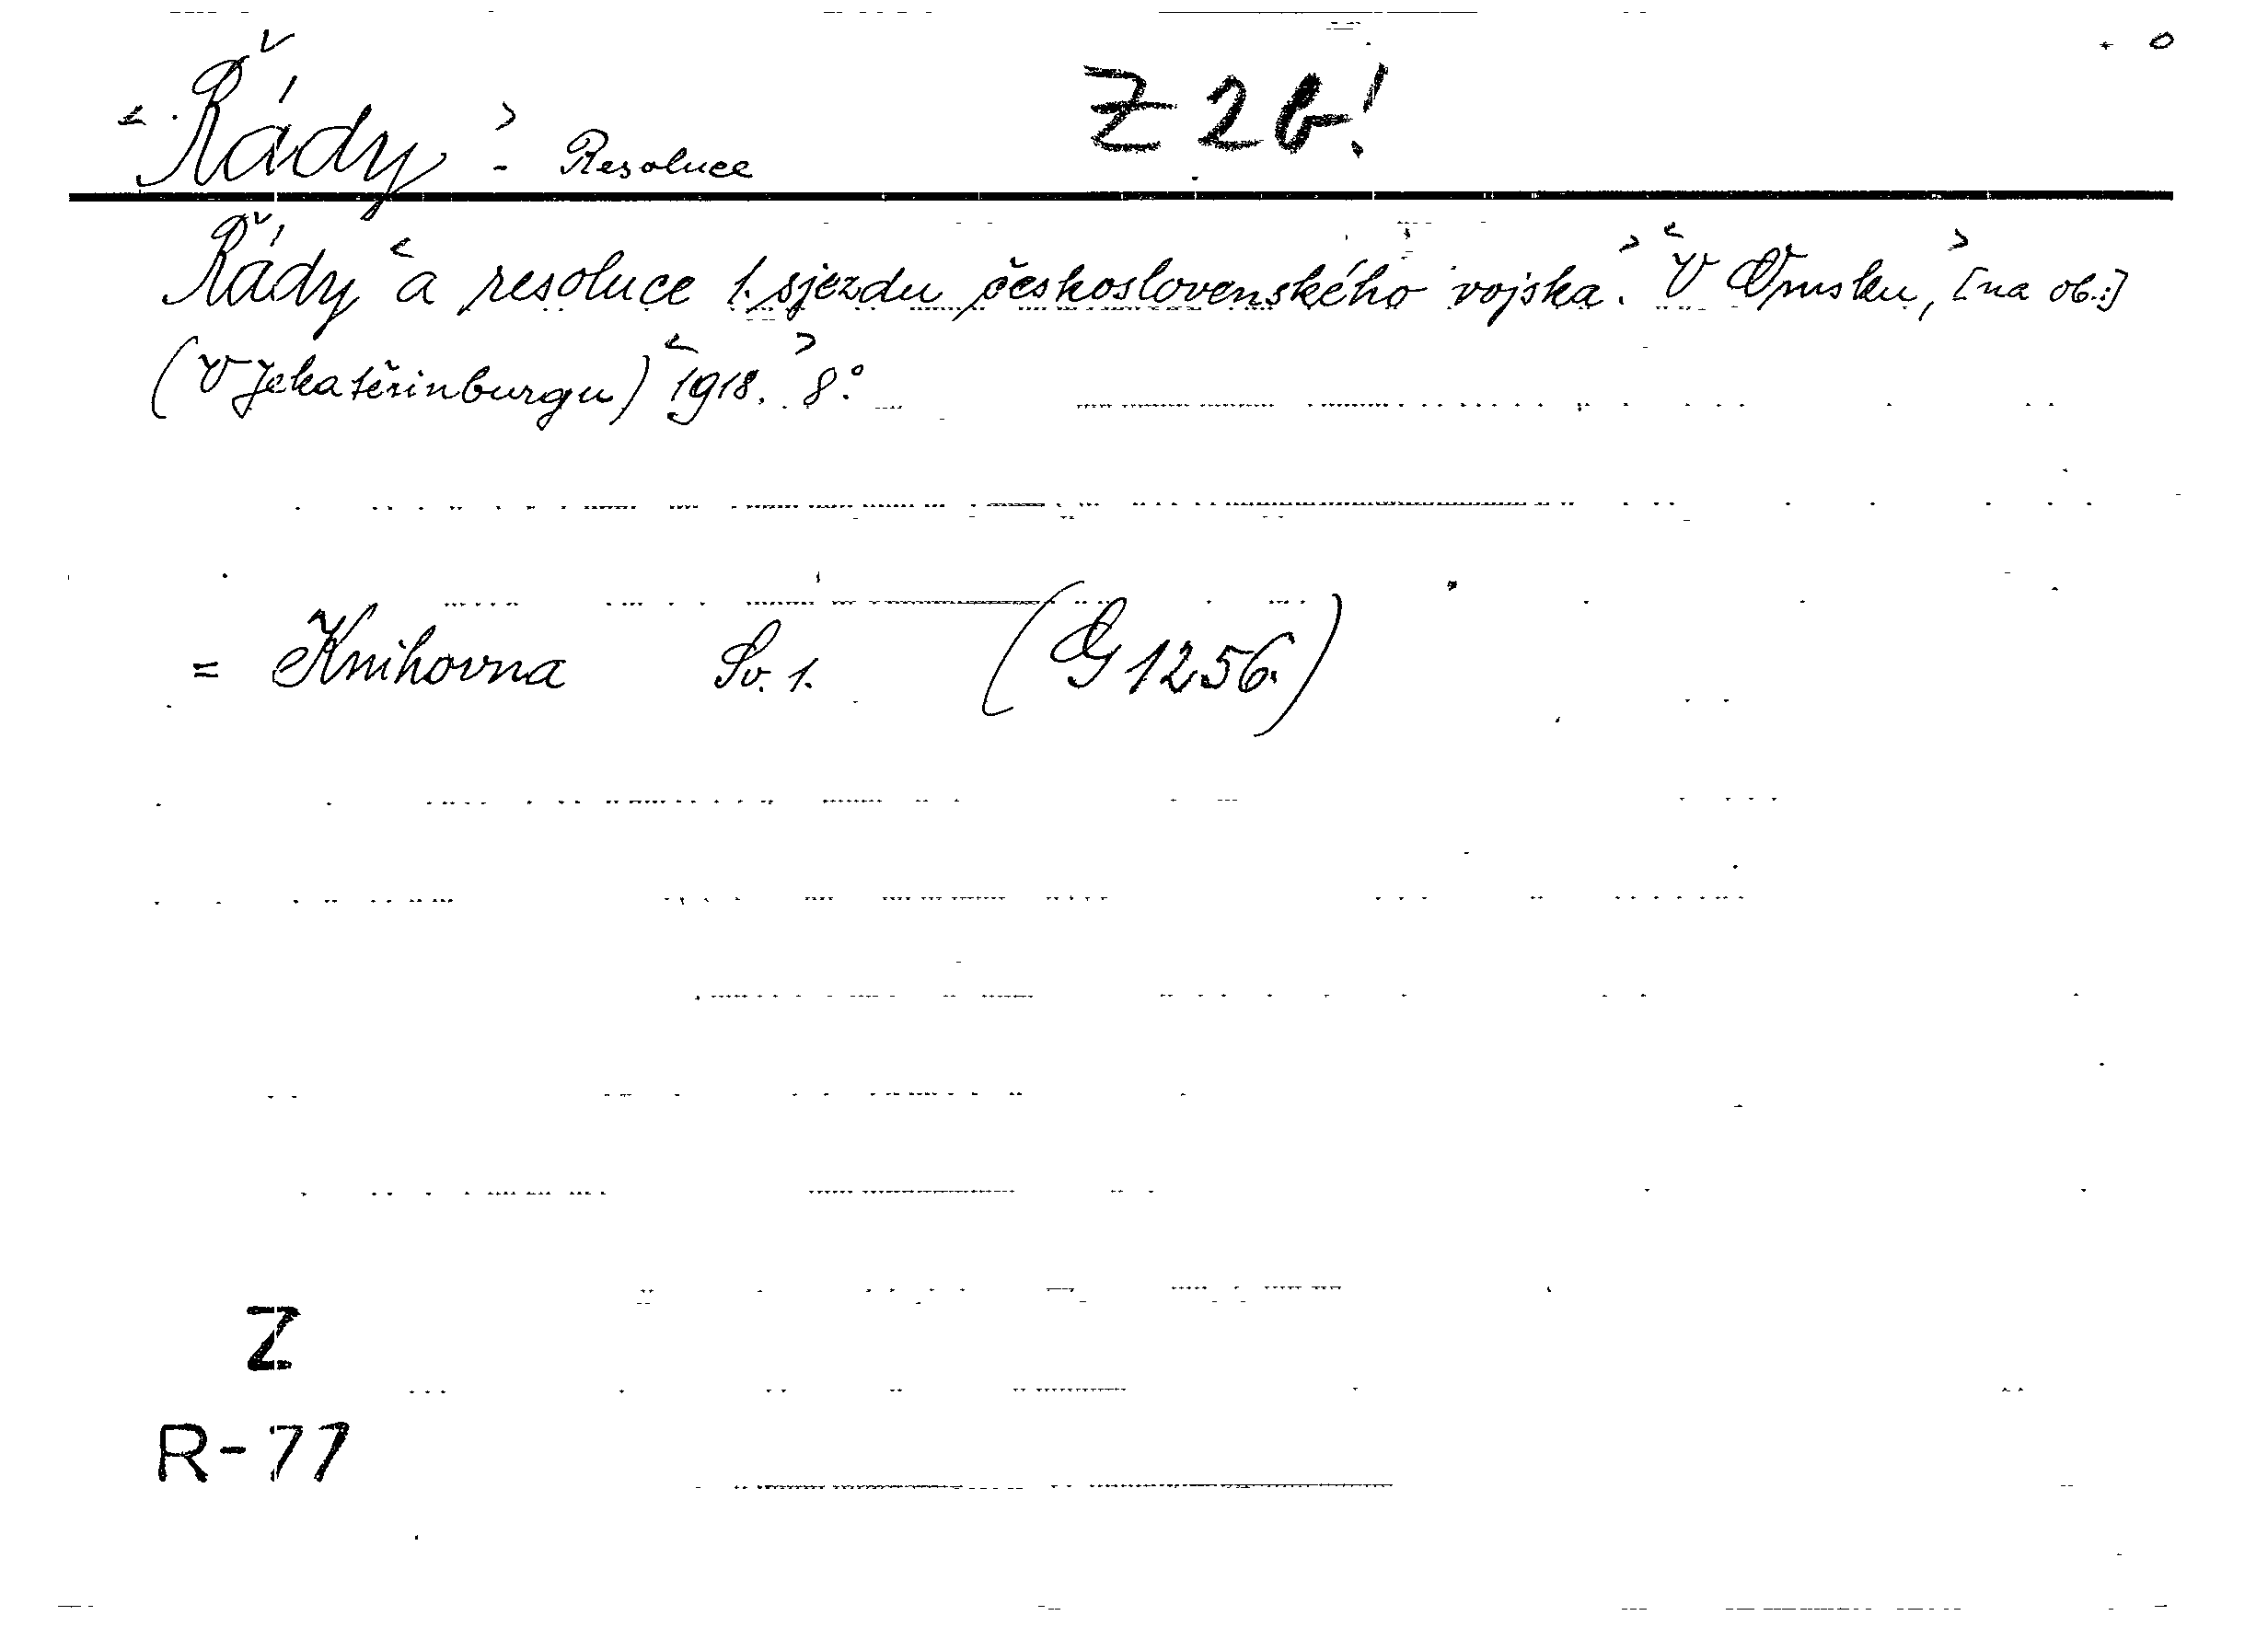 Řády - Resoluce Z 2b!
Řády a resoluce 1. sjezdu československého vojska. V Omsku, [na ob.:]
(V Jekatěrinburgu) 1918. 8°.
= Knihovna Sv. 1. (G 1256.)
Z
R-77